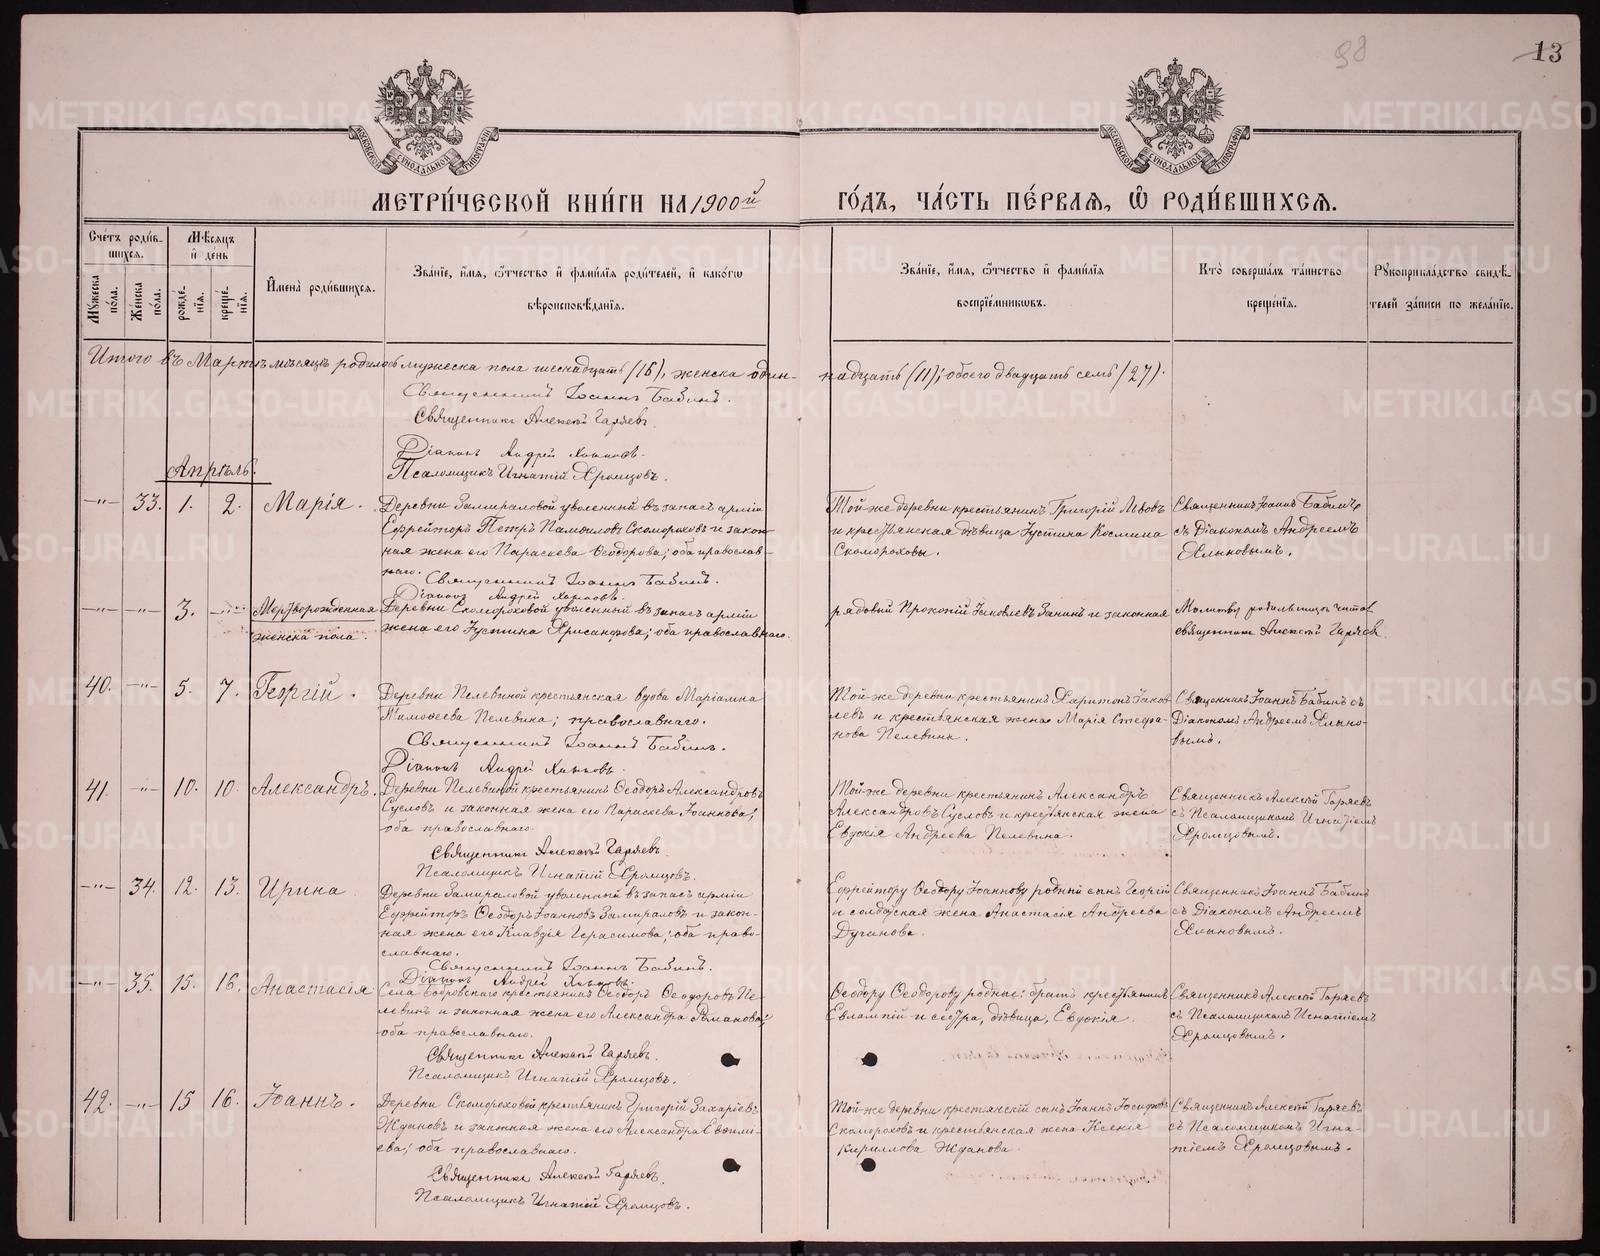 98
13
МЕТРИ́ЧЕСКОЙ КНИ́ГИ НА 1900й ГО́ДЪ, ЧА́СТЬ ПЕ́РВАѦ, Ѡ҆ РОДИ́ВШИХСѦ.
Сче́тъ роди́в-шихсѧ.
Мѣ́сѧцъ и҆ де́нь
Мꙋ́жеска по́ла.
Же́нска по́ла.
рожде́-нїѧ.
креще́-нїѧ.
И҆мена̀ роди́вшихсѧ.
Зва́нїе, и҆́мѧ, ѻ҆́тчество и҆ фами́лїѧ роди́телей, и҆ како́гѡ
вѣроисповѣ́данїѧ.
Зва́нїе, и҆́мѧ, ѻ҆́тчество и҆ фами́лїѧ
воспрїе́мниковъ.
Кто̀ соверша́лъ та́инство
креще́нїѧ.
Рꙋкоприкла́дство свидѣ́-
телей за́писи по жела́нїю.
Итого въ Мартѣ мѣсяцѣ родилось мужеска пола шестнадцать (16), женска один-
надцать (11); обоего двадцать семь (27).
Священникъ Іоаннъ Бабинъ.
Священникъ Алексѣй Гаряевъ.
Діаконъ Андрей Хлыновъ.
Псаломщикъ Игнатій Храмцовъ.
Апрѣль.
-"- 33. 1. 2. Марія.
Деревни Замираловой уволенный въ запасъ арміи
Ефрейторъ Петръ Памфиловъ Скомороховъ и закон-
ная жена его Параскева Ѳеодорова; оба православ-
наго.
Священникъ Іоаннъ Бабинъ.
Діаконъ Андрей Хлыновъ.
Той-же деревни крестьянинъ Григорій Львовъ
и крестьянская дѣвица Іустина Космина
Скомороховы.
Священникъ Іоаннъ Бабинъ
съ Діакономъ Андреемъ
Хлыновымъ.
-"- -"- 3. -"- Мертворожденная
женска пола.
Деревни Скомороховой уволенный въ запасъ арміи
жена его Іустина Хрисанфова; оба православнаго.
рядовый Прокопій Іаковлевъ Занинъ и законная
Молитву родильницѣ читалъ
священникъ Алексѣй Гаряевъ.
40. -"- 5. 7. Георгій.
Деревни Пелевиной крестьянская вдова Маріамна
Тимоѳеева Пелевина; православнаго.
Священникъ Іоаннъ Бабинъ.
Діаконъ Андрей Хлыновъ.
Той-же деревни крестьянинъ Харитонъ Іаков-
левъ и крестьянская жена Марія Стефа-
нова Пелевины.
Священникъ Іоаннъ Бабинъ съ
Діакономъ Андреемъ Хлыно-
вымъ.
41. -"- 10. 10. Александръ.
Деревни Пелевиной крестьянинъ Ѳеодоръ Александровъ
Сусловъ и законная жена его Параскева Іоаннова;
оба православнаго.
Священникъ Алексѣй Гаряевъ.
Псаломщикъ Игнатій Храмцовъ.
Той-же деревни крестьянинъ Александръ
Александровъ Сусловъ и крестьянская жена
Евдокія Андреева Пелевина.
Священникъ Алексѣй Гаряевъ
съ Псаломщикомъ Игнатіемъ
Храмцовымъ.
-"- 34. 12. 13. Ирина
Деревни Замираловой уволенный въ запасъ арміи
Ефрейторъ Ѳеодоръ Іоанновъ Замираловъ и закон-
ная жена его Клавдія Герасимова; оба право-
славнаго.
Священникъ Іоаннъ Бабинъ.
Діаконъ Андрей Хлыновъ.
Ефрейтору Ѳеодору Іоаннову родный сынъ Георгій
и солдатская жена Анастасія Андреева
Дуганова.
Священникъ Іоаннъ Бабинъ
съ Діакономъ Андреемъ
Хлыновымъ.
-"- 35. 15. 16. Анастасія
Села Бобровскаго крестьянинъ Ѳеодоръ Ѳеодоровъ Пе-
левинъ и законная жена его Александра Романова;
оба православнаго.
Священникъ Алексѣй Гаряевъ.
Псаломщикъ Игнатій Храмцовъ.
Ѳеодору Ѳеодорову родные: братъ крестьянинъ
Евлампій и сестра, дѣвица, Евдокія.
Священникъ Алексѣй Гаряевъ
съ Псаломщикомъ Игнатіемъ
Храмцовымъ.
42. -"- 15 16. Іоаннъ.
Деревни Скомороховой крестьянинъ Григорій Захаріевъ
Ждановъ и законная жена его Александра Евѳимі-
ева; оба православнаго.
Священникъ Алексѣй Гаряевъ.
Псаломщикъ Игнатій Храмцовъ.
Той-же деревни крестьянскій сынъ Іоаннъ Іосифовъ
Скомороховъ и крестьянская жена Ксенія
Кириллова Жданова.
Священникъ Алексѣй Гаряевъ
съ Псаломщикомъ Игна-
тіемъ Храмцовымъ.
METRIKI.GASO-URAL.RU